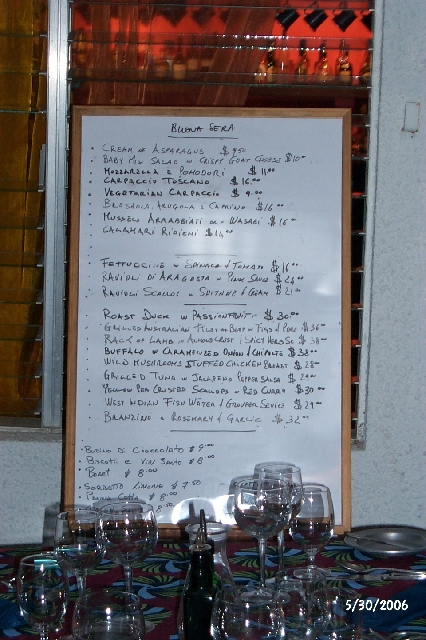 BUONA SERA
CREAM OF ASPARAGUS $ 9.50
BABY MIX SALAD W CRISPY GOAT CHEESE $10
MOZZARELLA & POMODORI $ 11.00
CARPACCIO TOSCANO $ 16.00
VEGETARIAN CARPACCIO $ 9.00
BRESAOLA, ARUGOLA & CAPRINO $ 16
MUSSELS ARRABBIATI OR WASABI $ 16
CALAMARI RIPIENI $ 14.00
FETTUCCINE W SPINACH & TOMATO $ 16
RAVIOLI DI ARAGOSTA W PINK SAUCE $ 24
RAVIOLI SCALLOP W SPINACH & CREAM $ 21
ROAST DUCK W PASSIONFRUIT $ 30
GRILLED AUSTRALIAN FILET OF BEEF W FIGS & PORT $ 36
RACK OF LAMB W ALMOND CRUST & SPICY HERB SC $ 38
BUFFALO W CARAMELIZED ONION & CHIPOTLE $ 38
WILD MUSHROOMS STUFFED CHICKEN BREAST $ 28
GRILLED TUNA W JALAPENO PEPPER SALSA $ 29
YELLOW PEA CRUSTED SCALLOPS W RED CURRY $ 30
WEST INDIAN FISH WATER & GROUPER SERVICE $ 29
BRANZINO W ROSEMARY & GARLIC $ 32
BUDINO DI CIOCCOLATO $ 9.00
BISCOTTI E VIN SANTO $ 8.00
$ 8.00
SORBETTO LIMONE $ 7.50
PANNA COTTA $ 8.00
5/30/2006